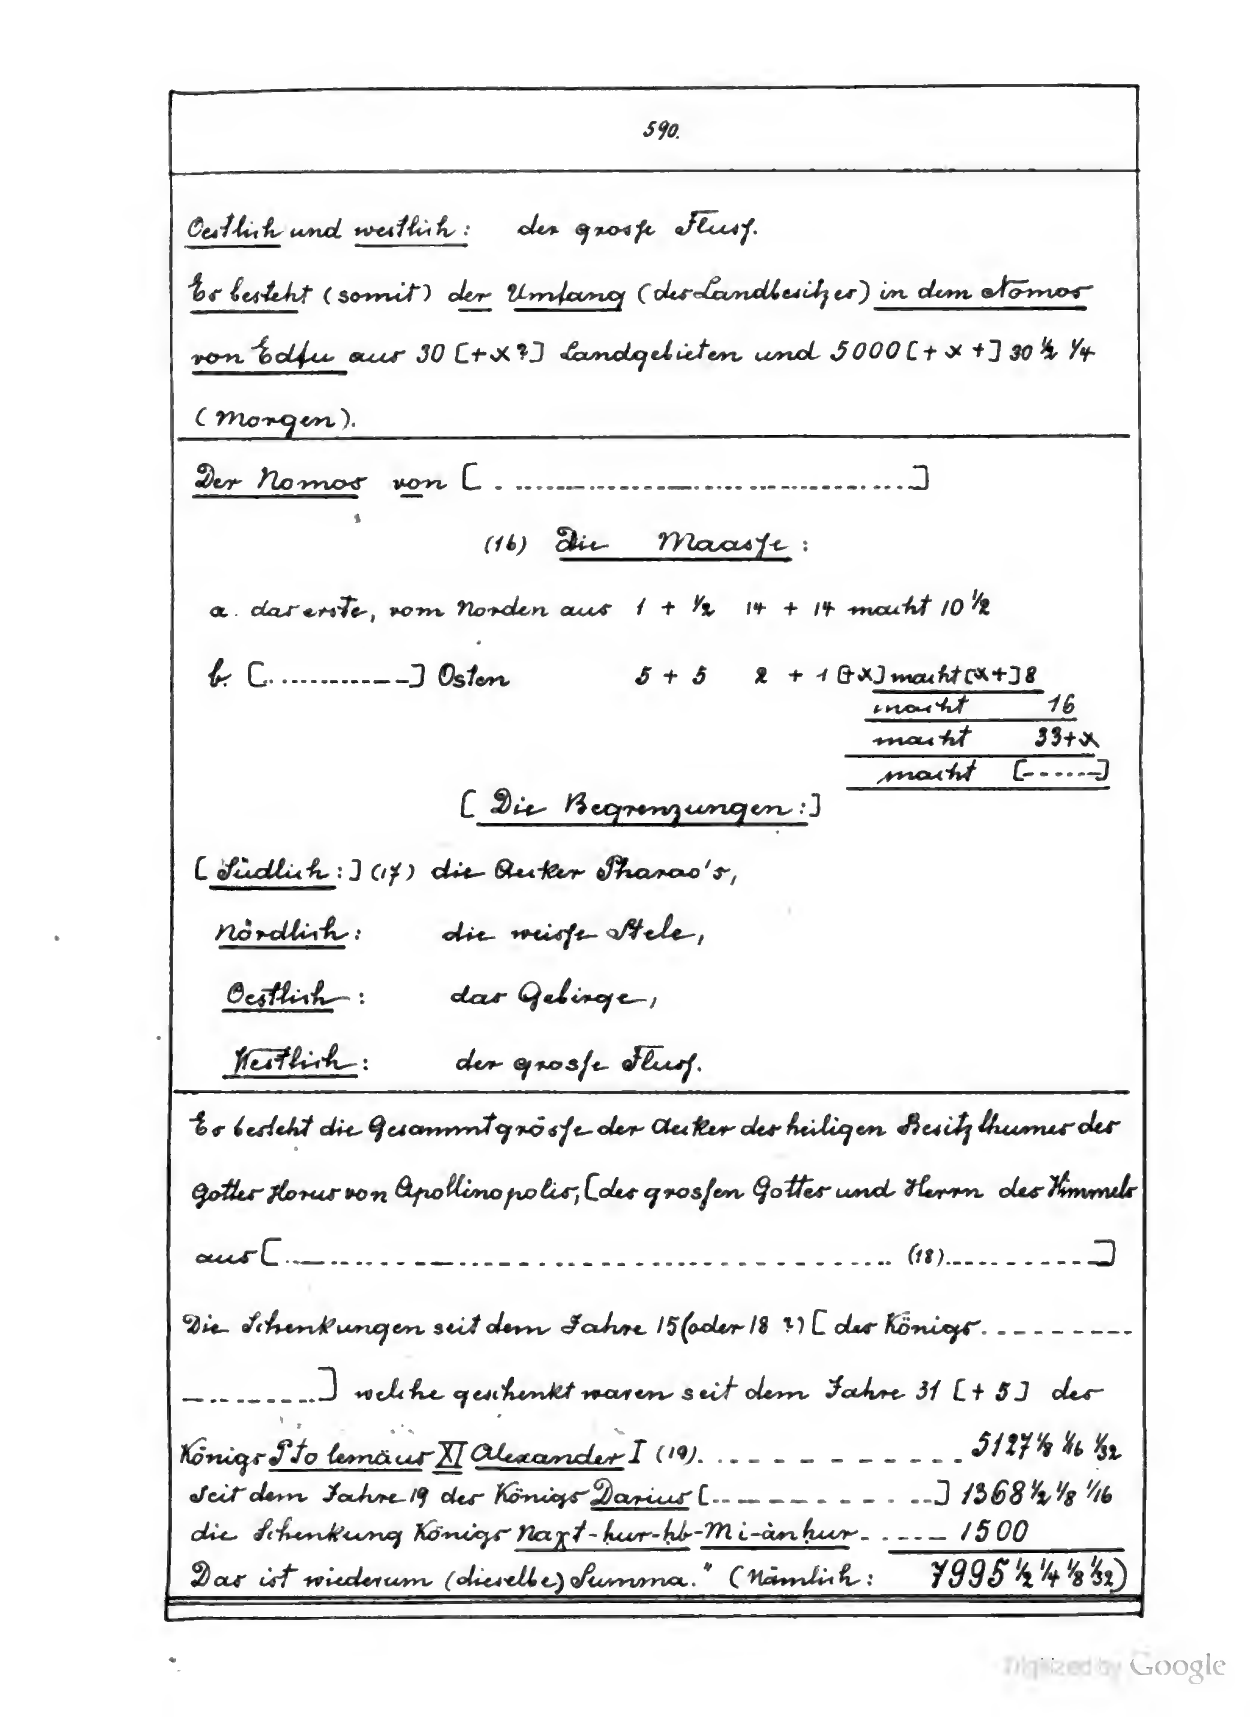 590.
Oestlich und westlich: der grosse Fluss.
Es besteht (somit) der Umfang (des Landbesitzes) in dem Nomos
von Edfu aus 30 [+x?] Landgebieten und 5000 [+ x +] 30 ½ ¼
(Morgen).
Der Nomos von [ . ........................................]
(16) Die Maasse:
a. das erste, vom Norden aus 1 + ½ 14 + 14 macht 10 ½
b. [.............] Osten 5 + 5 2 + 1 [+x] macht [x+] 8
macht 16
macht 33+x
macht [------]
[Die Begrenzungen:]
[Südlich:] (17) die Aecker Pharao's,
Nördlich: die weisse Stele,
Oestlich: das Gebirge,
Westlich: der grosse Fluss.
Es besteht die Gesammtgrösse der Aecker des heiligen Besitzthumes des
Gottes Horus von Apollinopolis, [des grossen Gottes und Herrn des Himmels
aus [........................................ (18)............]
Die Schenkungen seit dem Jahre 15 (oder 18 ?) [des Königs..........
..........] welche geschenkt waren seit dem Jahre 31 [+ 5] des
Königs Ptolemäus XI Alexander I (19)............. 5127 ⅛ 1/16 1/32
seit dem Jahre 19 des Königs Darius [.............] 1368 ½ ⅛ 1/16
die Schenkung Königs Naχt-ḥur-ḥb-Mi-ànḥur...... 1500
Das ist wiederum (dieselbe) Summa." (Nämlich: 7995 ½ ¼ ⅛ 1/32)
Digitized by Google